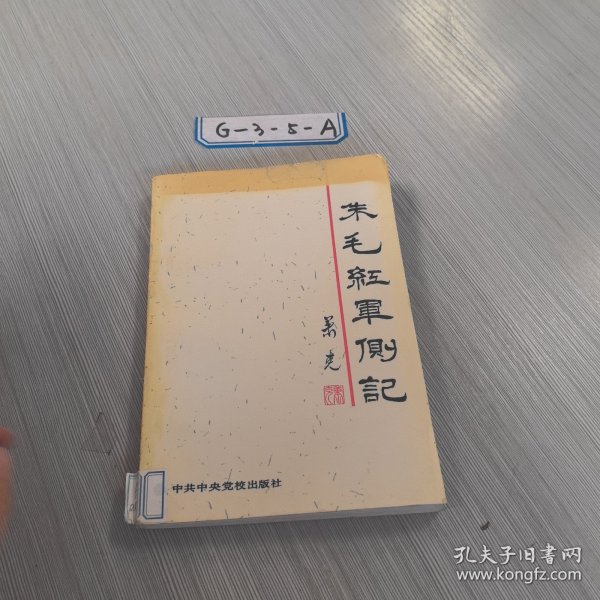 G-3-5-A
朱毛紅軍側記
萧克
中共中央党校出版社
孔夫子旧書网
www.kongfz.com